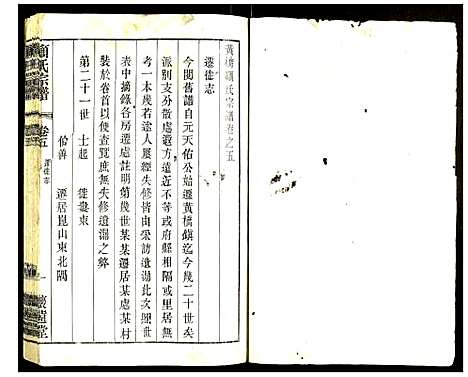 黃橋顧氏宗譜卷之五
遷徙志
今閱舊譜自元天佑公始遷黃橋鎮迄今幾二十世矣
派別支分散處遐方遠近不等或府縣相隔或里居無
考一本幾若塗人屢經失修皆由采訪遺漏此次照世
表中摘錄各房遷處註明第幾世某某遷居某處某村
裝於卷首以便查覽庶無失修遺漏之弊
第二十一世 士起 徙婁東
伯善 遷居崑山東北隅
顧氏宗譜 卷五 遷徙志 一